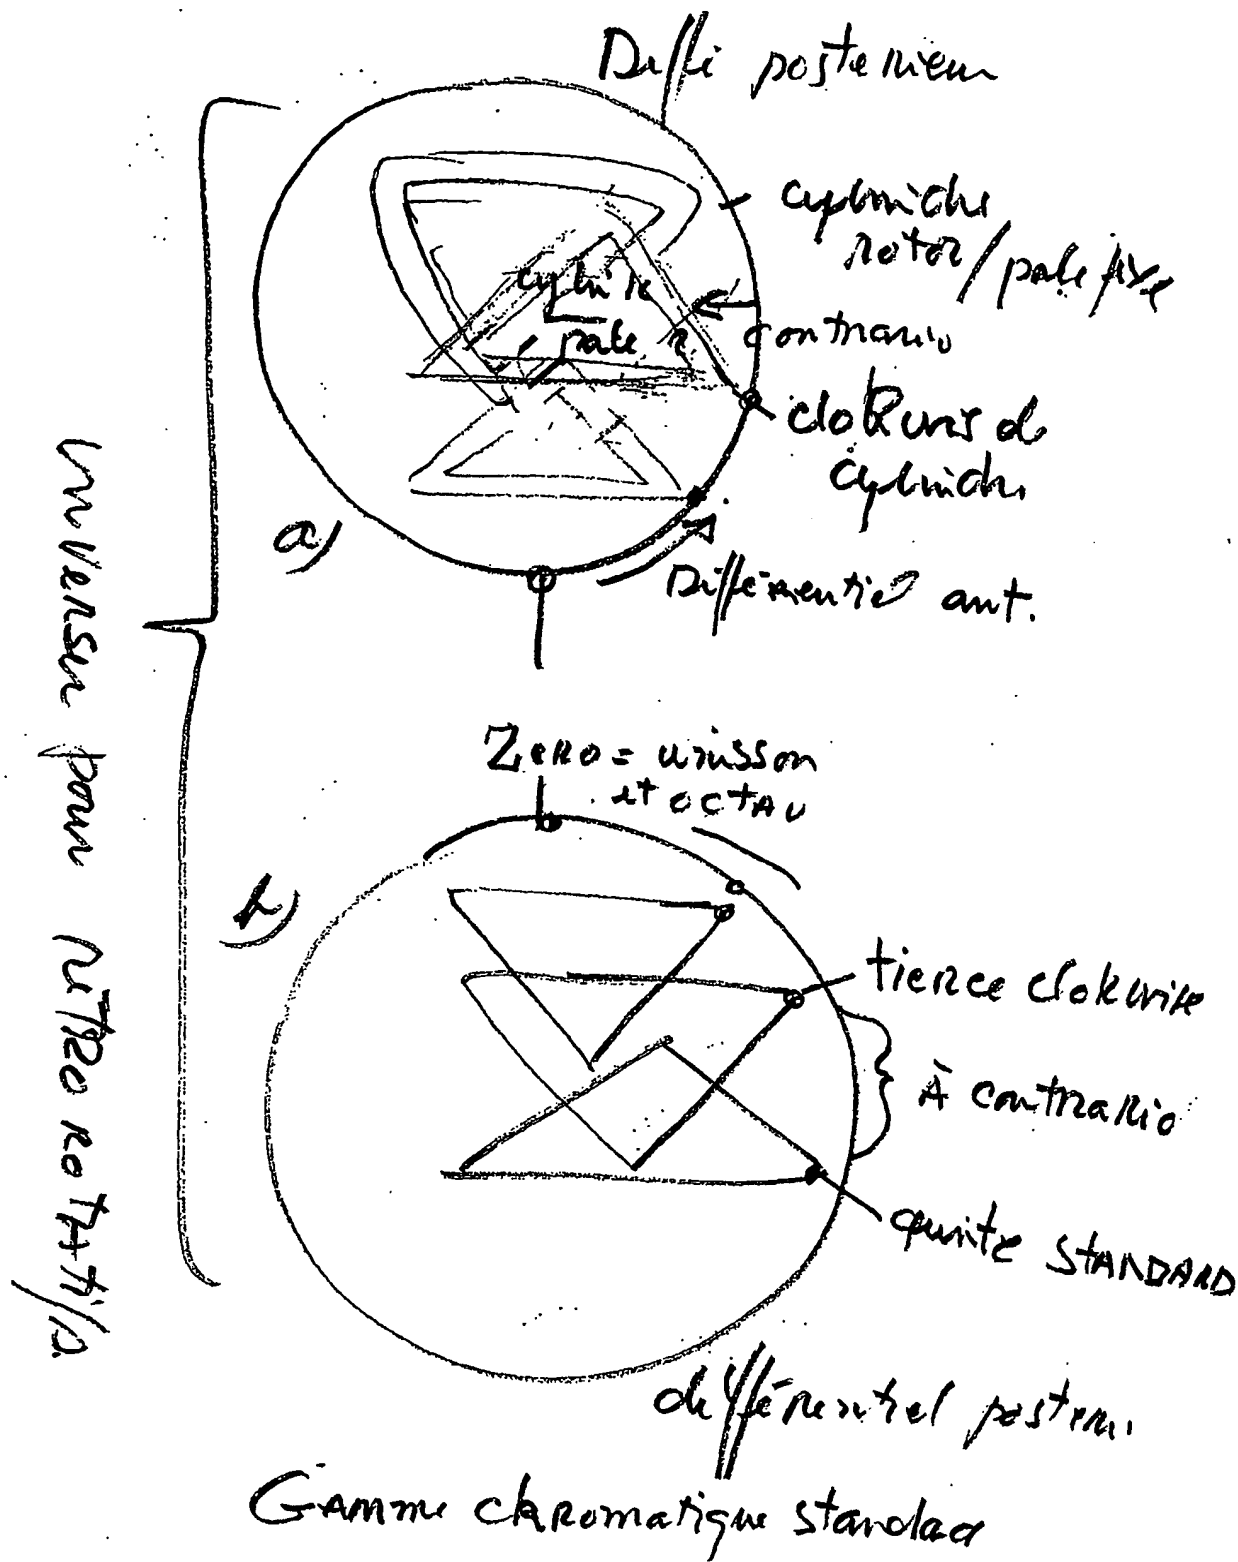 Diffé posterieur
cylindre
rotor/pale fixe
cylindre
pale
contrario
clokwis de
cylindre
a)
Différentiel ant.
inverser pour rétrorotatif.
Zero = unisson
et octav
b)
tierce clokwise
À contrario
quinte STANDARD
différentiel posteri.
Gamme chromatique standard